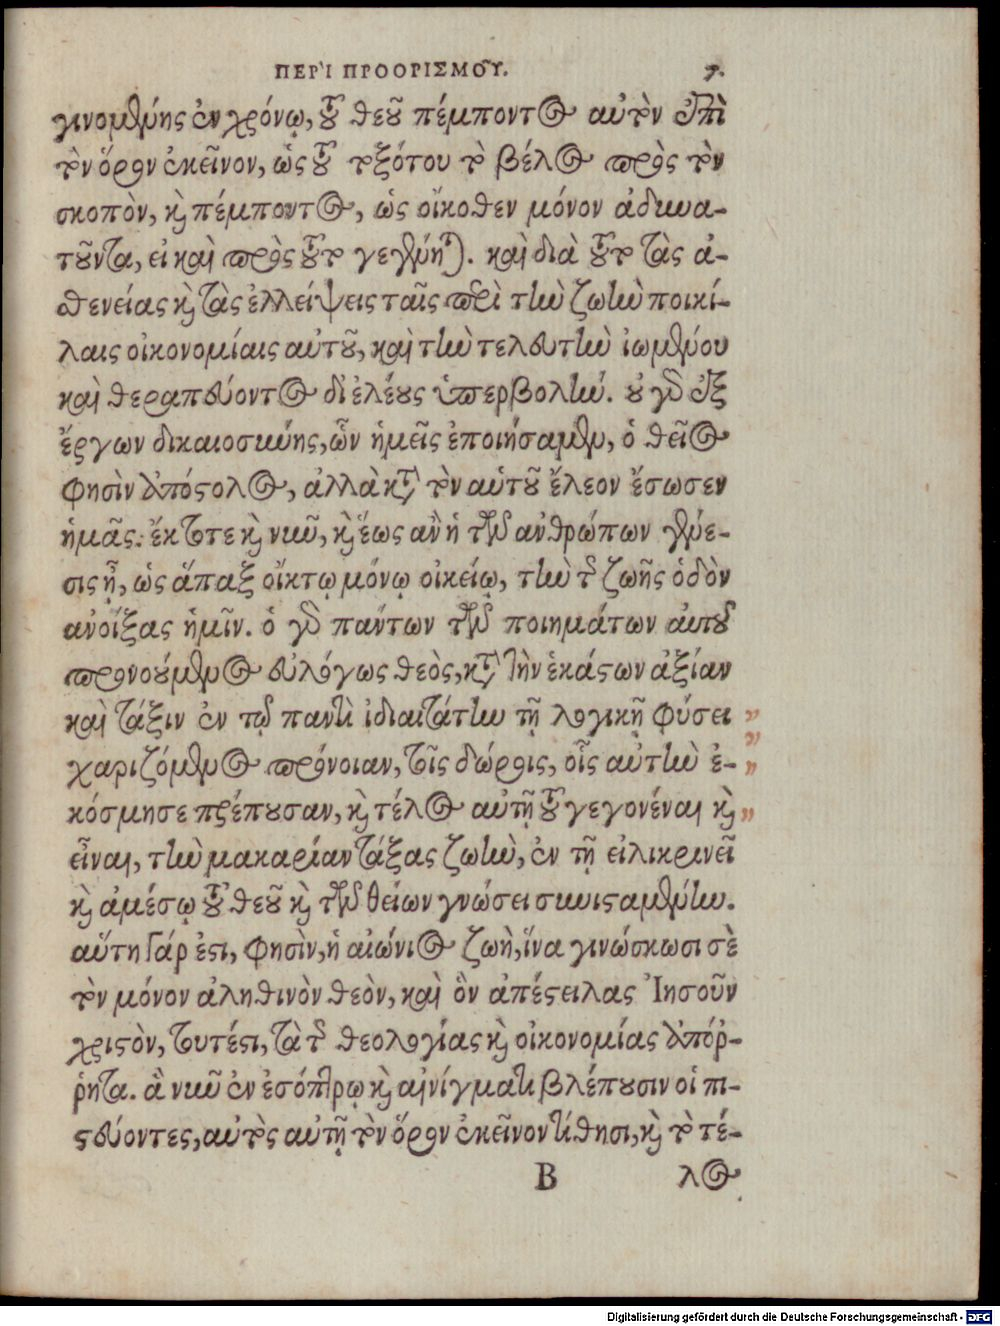 ΠΕΡῚ ΠΡΟΟΡΙΣΜΟΥ͂.
γινομένης ἐν χρόνῳ, τοῦ θεοῦ πέμποντος αὐτὴν ἐπὶ
τὸν ὅρον ἐκεῖνον, ὡς τοῦ τοξότου τὸ βέλος πρὸς τὸν
σκοπὸν, καὶ πέμποντος, ὡς οἴκοθεν μόνον ἀδυνα-
τοῦντα, εἰ καὶ πρὸς τοῦτο γεγένηται. καὶ διὰ τοῦτο τὰς ἀ-
σθενείας καὶ τὰς ἐλλείψεις ταῖς περὶ τὴν ζωὴν ποικί-
λαις οἰκονομίαις αὐτοῦ, καὶ τὴν τελευτὴν ἰωμένου
καὶ θεραπεύοντος δι' ἐλέους ὑπερβολήν. οὐ γὰρ ἐξ
ἔργων δικαιοσύνης, ὧν ἡμεῖς ἐποιήσαμεν, ὁ θεῖος
φησὶν ἀπόστολος, ἀλλὰ κατὰ τὸν αὑτοῦ ἔλεον ἔσωσεν
ἡμᾶς: ἔκτοτε καὶ νῦν, καὶ ἕως ἂν ἡ τῶν ἀνθρώπων γένε-
σις ᾖ, ὡς ἅπαξ οἴκτῳ μόνῳ οἰκείῳ, τὴν τῆς ζωῆς ὁδὸν
ἀνοίξας ἡμῖν. ὁ γὰρ πάντων τῶν ποιημάτων αὐτοῦ
προνούμενος εὐλόγως θεὸς, κατὰ τὴν ἑκάστων ἀξίαν
καὶ τάξιν ἐν τῷ παντὶ ἰδιαιτάτην τῇ λογικῇ φύσει
χαριζόμενος πρόνοιαν, τοῖς δώροις, οἷς αὐτὴν ἐ-
κόσμησε πρέπουσαν, καὶ τέλος αὐτῇ τοῦ γεγονέναι καὶ
εἶναι, τὴν μακαρίαν τάξας ζωὴν, ἐν τῇ εἰλικρινεῖ
καὶ ἀμέσῳ τοῦ θεοῦ καὶ τῶν θείων γνώσει συνισαμένην.
αὕτη γάρ ἐστι, φησὶν, ἡ αἰώνιος ζωὴ, ἵνα γινώσκωσι σὲ
τὸν μόνον ἀληθινὸν θεὸν, καὶ ὃν ἀπέστειλας Ἰησοῦν
χριστὸν, τουτέστι, τὰ τῆς θεολογίας καὶ οἰκονομίας ἀπόρ-
ρητα. ἃ νῦν ἐν ἐσόπτρῳ καὶ αἰνίγματι βλέπουσιν οἱ πι-
στεύοντες, αὐτὸς αὐτῇ τὸν ὅρον ἐκεῖνον τίθησι, καὶ τὸ τέ-
B λος
Digitalisierung gefördert durch die Deutsche Forschungsgemeinschaft - DFG